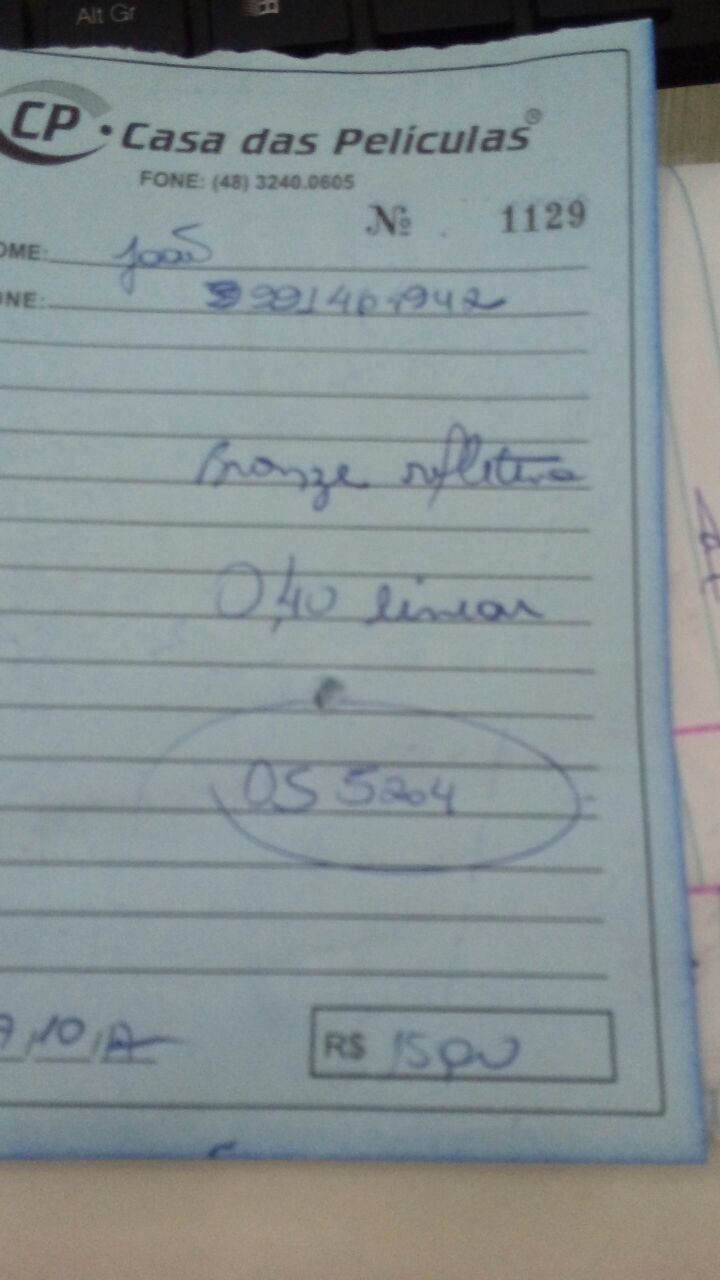 Alt Gr
CP · Casa das Películas®
FONE: (48) 3240.0605
Nº 1129
OME: João
ONE: 991464942
Bronze refletiva
0,40 linear
OS 5204
/10/
R$ 15,00